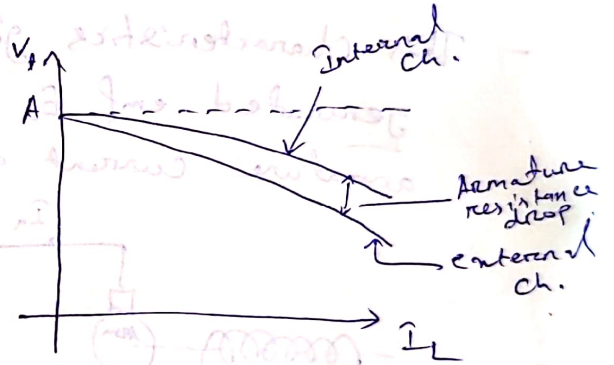 V_t
A
Internal
Ch.
Armature
resistance
drop
external
Ch.
I_L